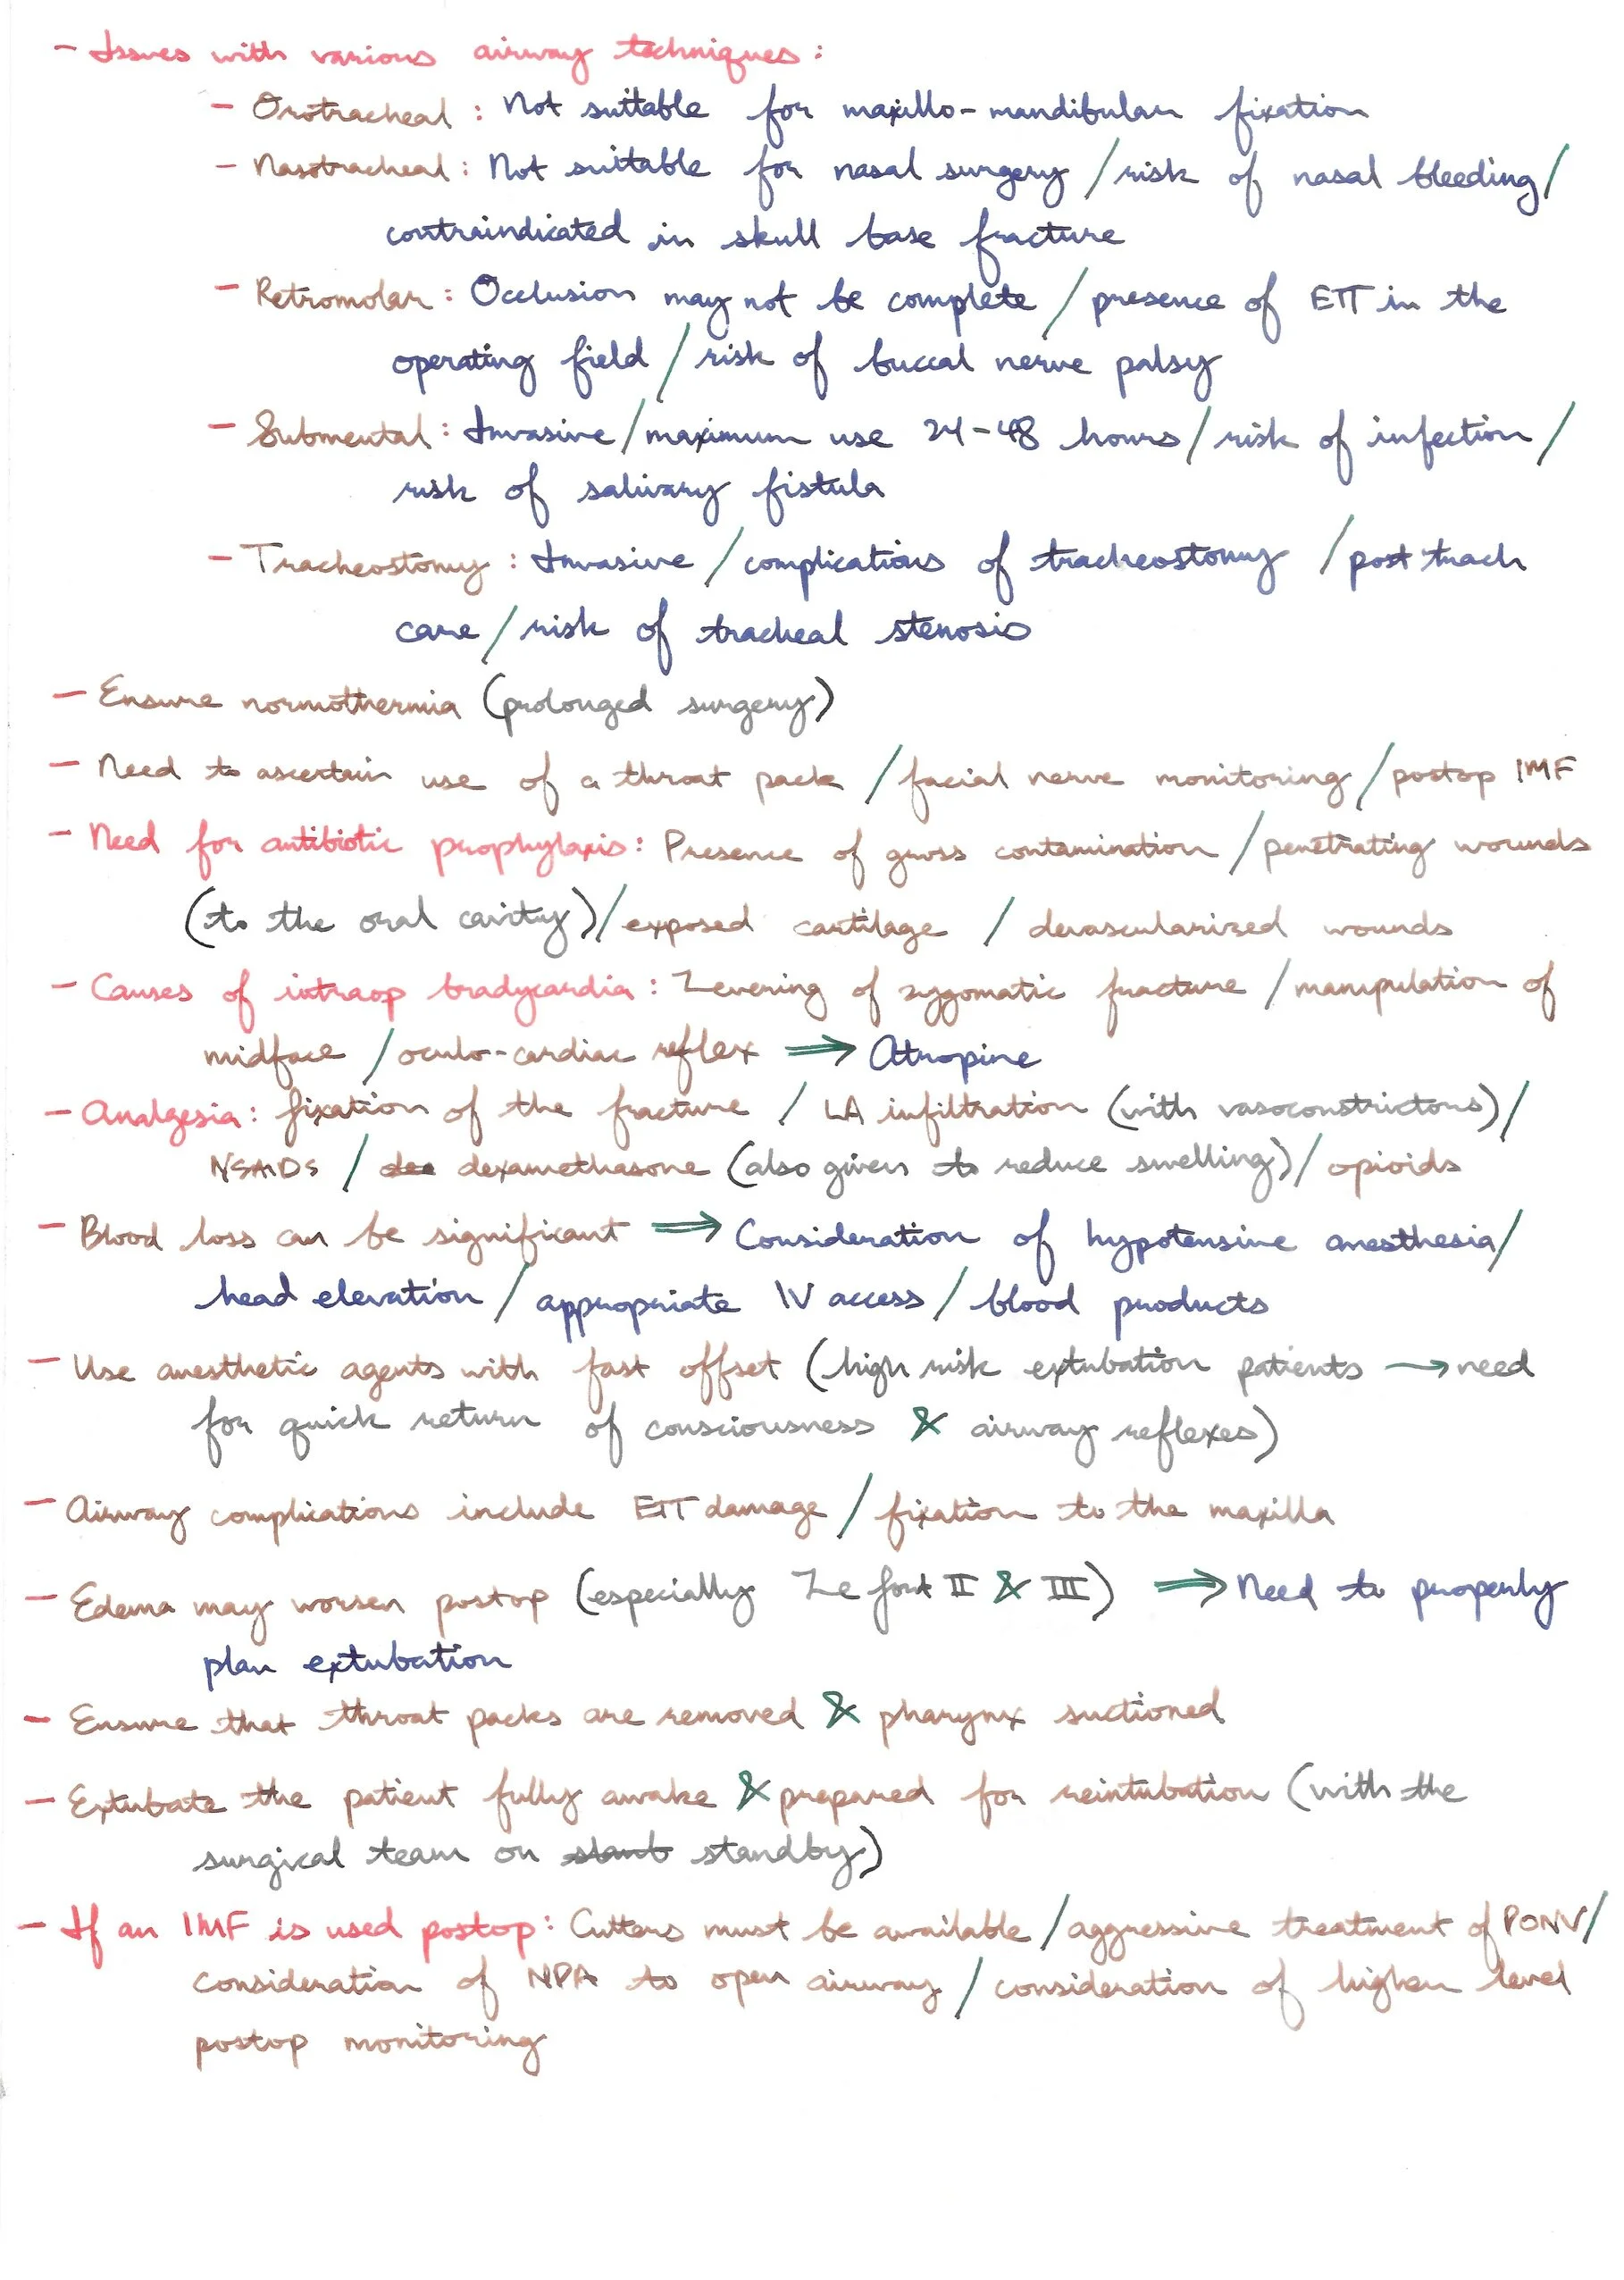 - Issues with various airway techniques:
- Orotracheal: Not suitable for maxillo-mandibular fixation
- Nasotracheal: Not suitable for nasal surgery / risk of nasal bleeding /
contraindicated in skull base fracture
- Retromolar: Occlusion may not be complete / presence of ETT in the
operating field / risk of buccal nerve palsy
- Submental: Invasive / maximum use 24-48 hours / risk of infection /
risk of salivary fistula
- Tracheostomy: Invasive / complications of tracheostomy / post trach
care / risk of tracheal stenosis
- Ensure normothermia (prolonged surgery)
- Need to ascertain use of a throat pack / facial nerve monitoring / postop IMF
- Need for antibiotic prophylaxis: Presence of gross contamination / penetrating wounds
(to the oral cavity) / exposed cartilage / devascularized wounds
- Causes of intraop bradycardia: Levering of zygomatic fracture / manipulation of
midface / oculo-cardiac reflex ⇒ Atropine
- Analgesia: fixation of the fracture / LA infiltration (with vasoconstrictors) /
NSAIDs / dexamethasone (also given to reduce swelling) / opioids
- Blood loss can be significant ⇒ Consideration of hypotensive anesthesia /
head elevation / appropriate IV access / blood products
- Use anesthetic agents with fast offset (high risk extubation patients → need
for quick return of consciousness & airway reflexes)
- Airway complications include ETT damage / fixation to the maxilla
- Edema may worsen postop (especially Le fort II & III) ⇒ Need to properly
plan extubation
- Ensure that throat packs are removed & pharynx suctioned
- Extubate the patient fully awake & prepared for reintubation (with the
surgical team on standby)
- If an IMF is used postop: Cutters must be available / aggressive treatment of PONV /
consideration of NPA to open airway / consideration of higher level
postop monitoring